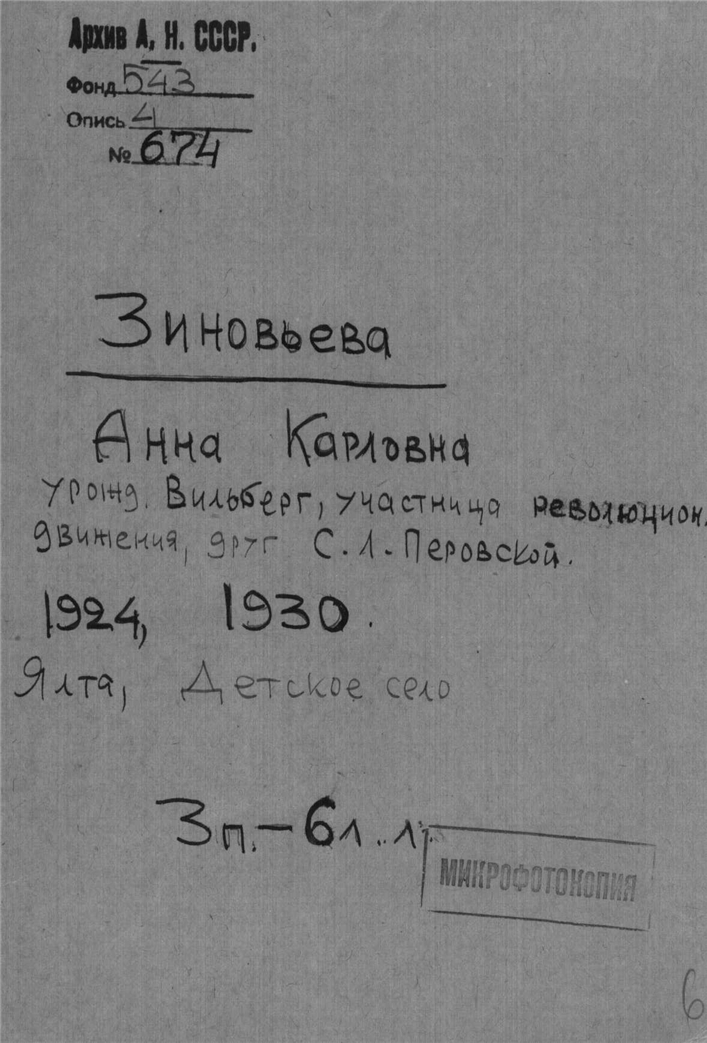 Архив А. Н. СССР.
Фонд 543
Опись 4
№ 674
Зиновьева
Анна Карловна
урожд. Вильберг, участница революцион.
движения, друг С. Л. Перовской.
1924, 1930.
Ялта, Детское село
3 п. – 6 л. л.
МИКРОФОТОКОПИЯ
6